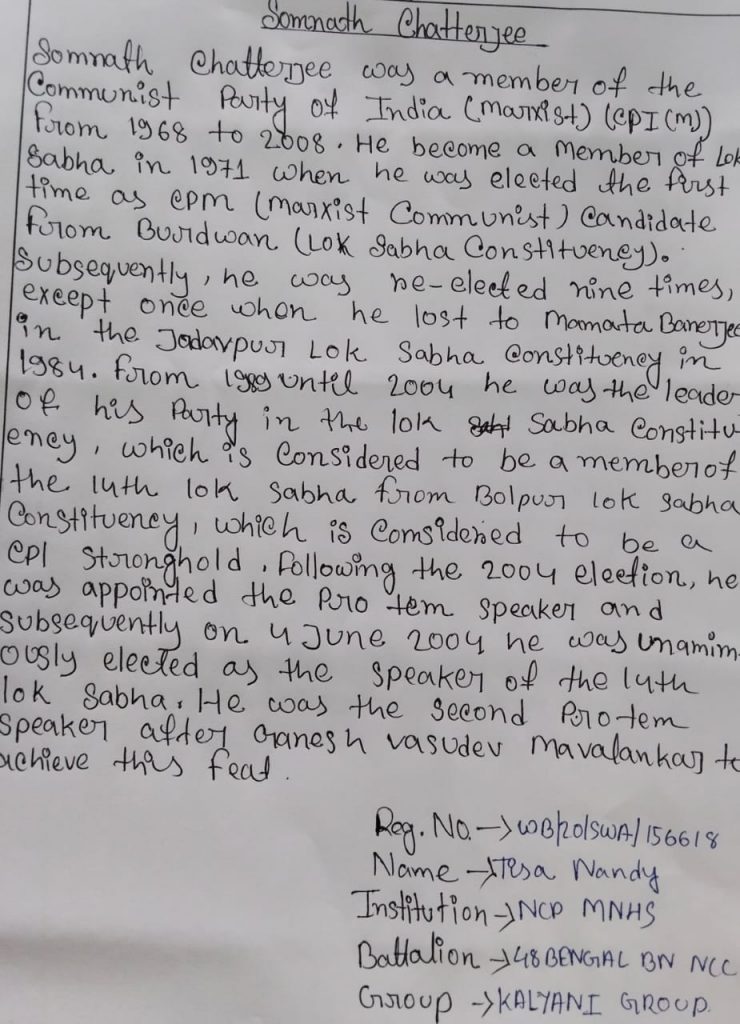 Somnath Chatterjee
Somnath Chatterjee was a member of the
Communist Party of India (marxist) (CPI(M))
from 1968 to 2008. He become a member of Lok
Sabha in 1971 when he was elected the first
time as cpm (marxist Communist) Candidate
from Burdwan (Lok Sabha Constituency).
Subsequently, he was re-elected nine times,
except once when he lost to Mamata Banerjee
in the Jadavpur Lok Sabha Constituency in
1984. from 1989 until 2004 he was the leader
of his Party in the lok Sabha Constitu-
ency, which is Considered to be a member of
the 14th lok Sabha from Bolpur lok Sabha
Constituency, which is Considered to be a
CPI Stronghold. following the 2004 election, he
was appointed the Pro tem speaker and
subsequently on 4 June 2004 he was unamim-
ously elected as the speaker of the 14th
lok Sabha. He was the second Pro-tem
speaker after Ganesh vasudev mavalankar to
achieve this feat.
Reg. No. → WB/20/SWA/156618
Name → Tesa Nandy
Institution → NCP MNHS
Battalion → 48 BENGAL BN NCC
Group → KALYANI GROUP.